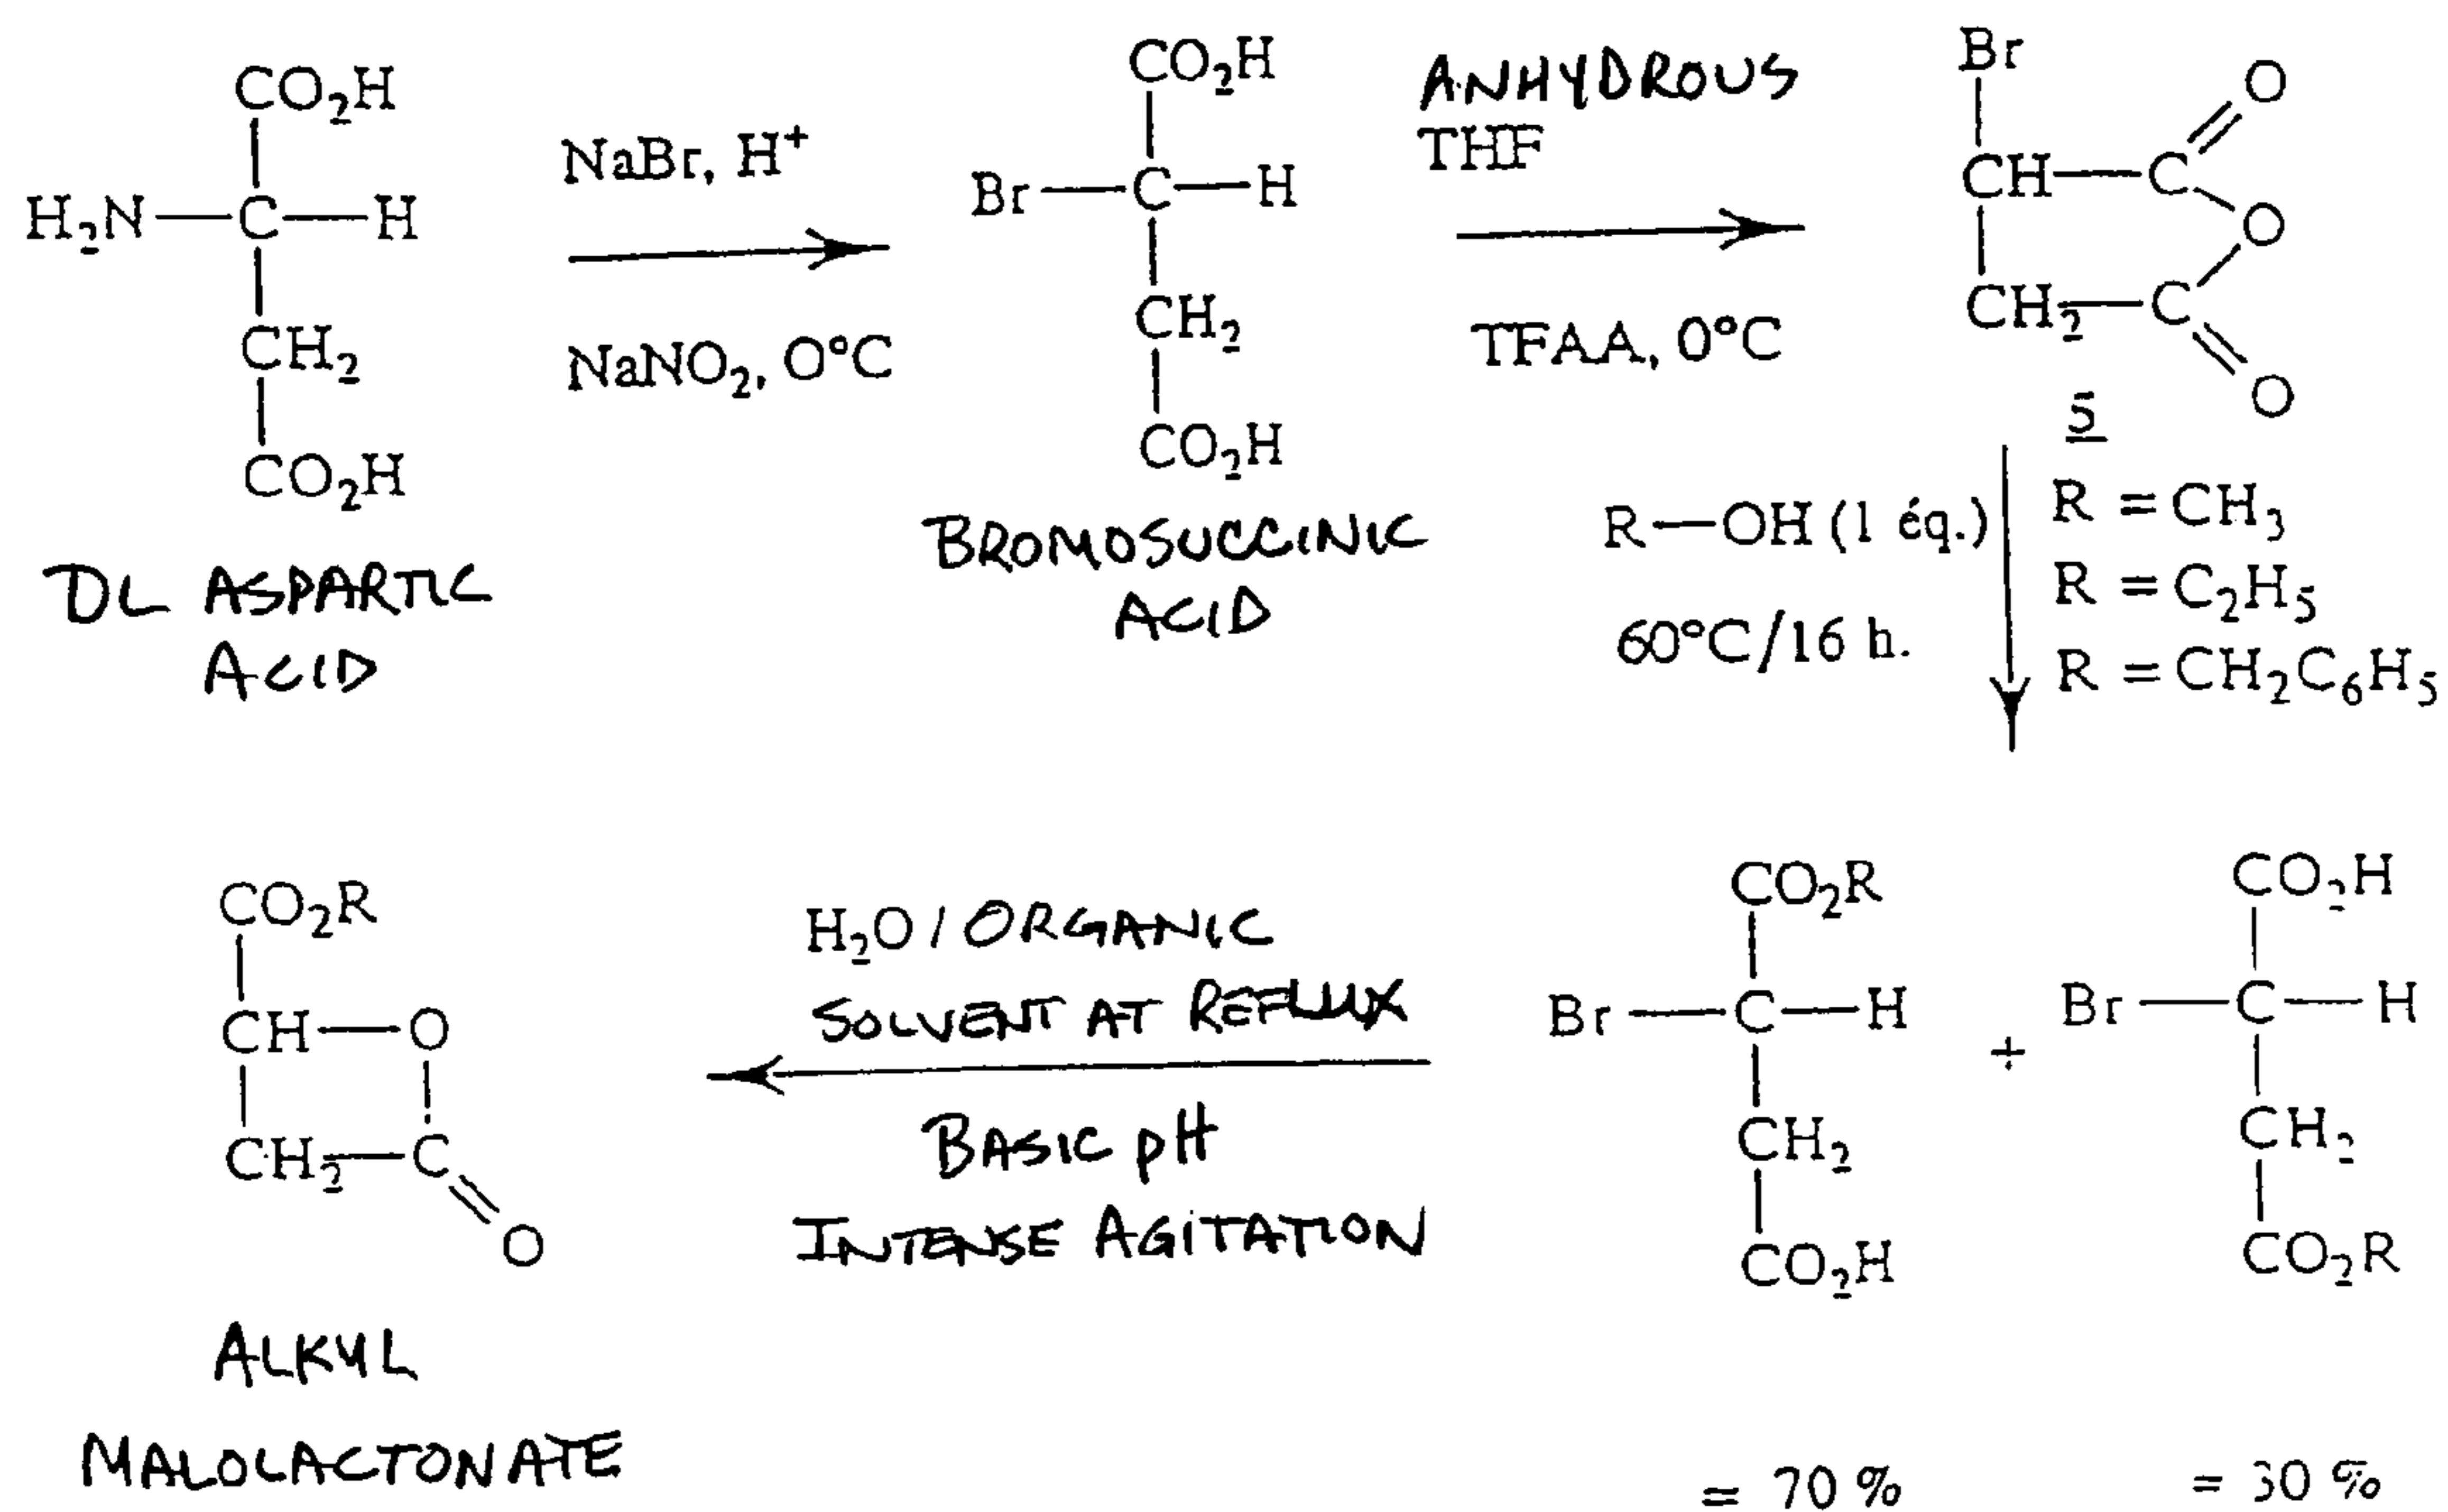 CO₂H
H₂N—C—H
CH₂
CO₂H
DL ASPARTIC
ACID
NaBr, H⁺
NaNO₂, 0°C
CO₂H
Br—C—H
CH₂
CO₂H
BROMOSUCCINIC
ACID
ANHYDROUS
THF
TFAA, 0°C
Br
O
CH—C
O
CH₂—C
O
5
R—OH (1 éq.)
60°C/16 h.
R = CH₃
R = C₂H₅
R = CH₂C₆H₅
CO₂R
CH—O
CH₂—C
O
ALKYL
MALOLACTONATE
H₂O / ORGANIC
SOLVENT AT REFLUX
BASIC pH
INTENSE AGITATION
CO₂R
Br—C—H
CH₂
CO₂H
= 70 %
+
CO₂H
Br—C—H
CH₂
CO₂R
= 30 %